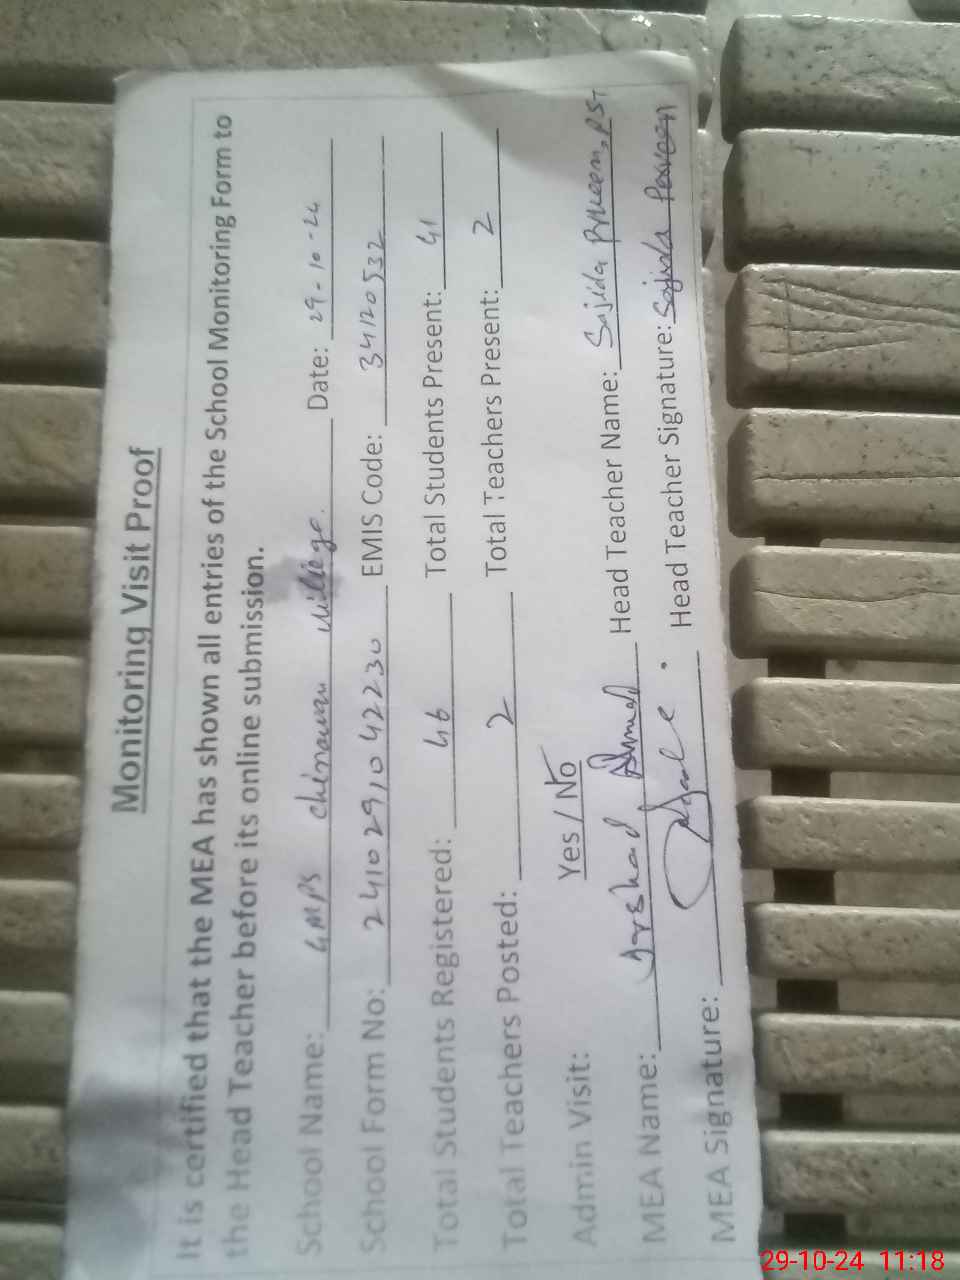 Monitoring Visit Proof
It is certified that the MEA has shown all entries of the School Monitoring Form to
the Head Teacher before its online submission.
School Name: GMPS chinawan Date: 29-10-24
School Form No: 2410291042230 EMIS Code: 34120532
Total Students Registered: 46 Total Students Present: 41
Total Teachers Posted: 2 Total Teachers Present: 2
Admin Visit: Yes / No
MEA Name: Arshad Ahmed Head Teacher Name: Sajida Prveen, PST
MEA Signature: Head Teacher Signature: Sajida Perveen
29-10-24 11:18